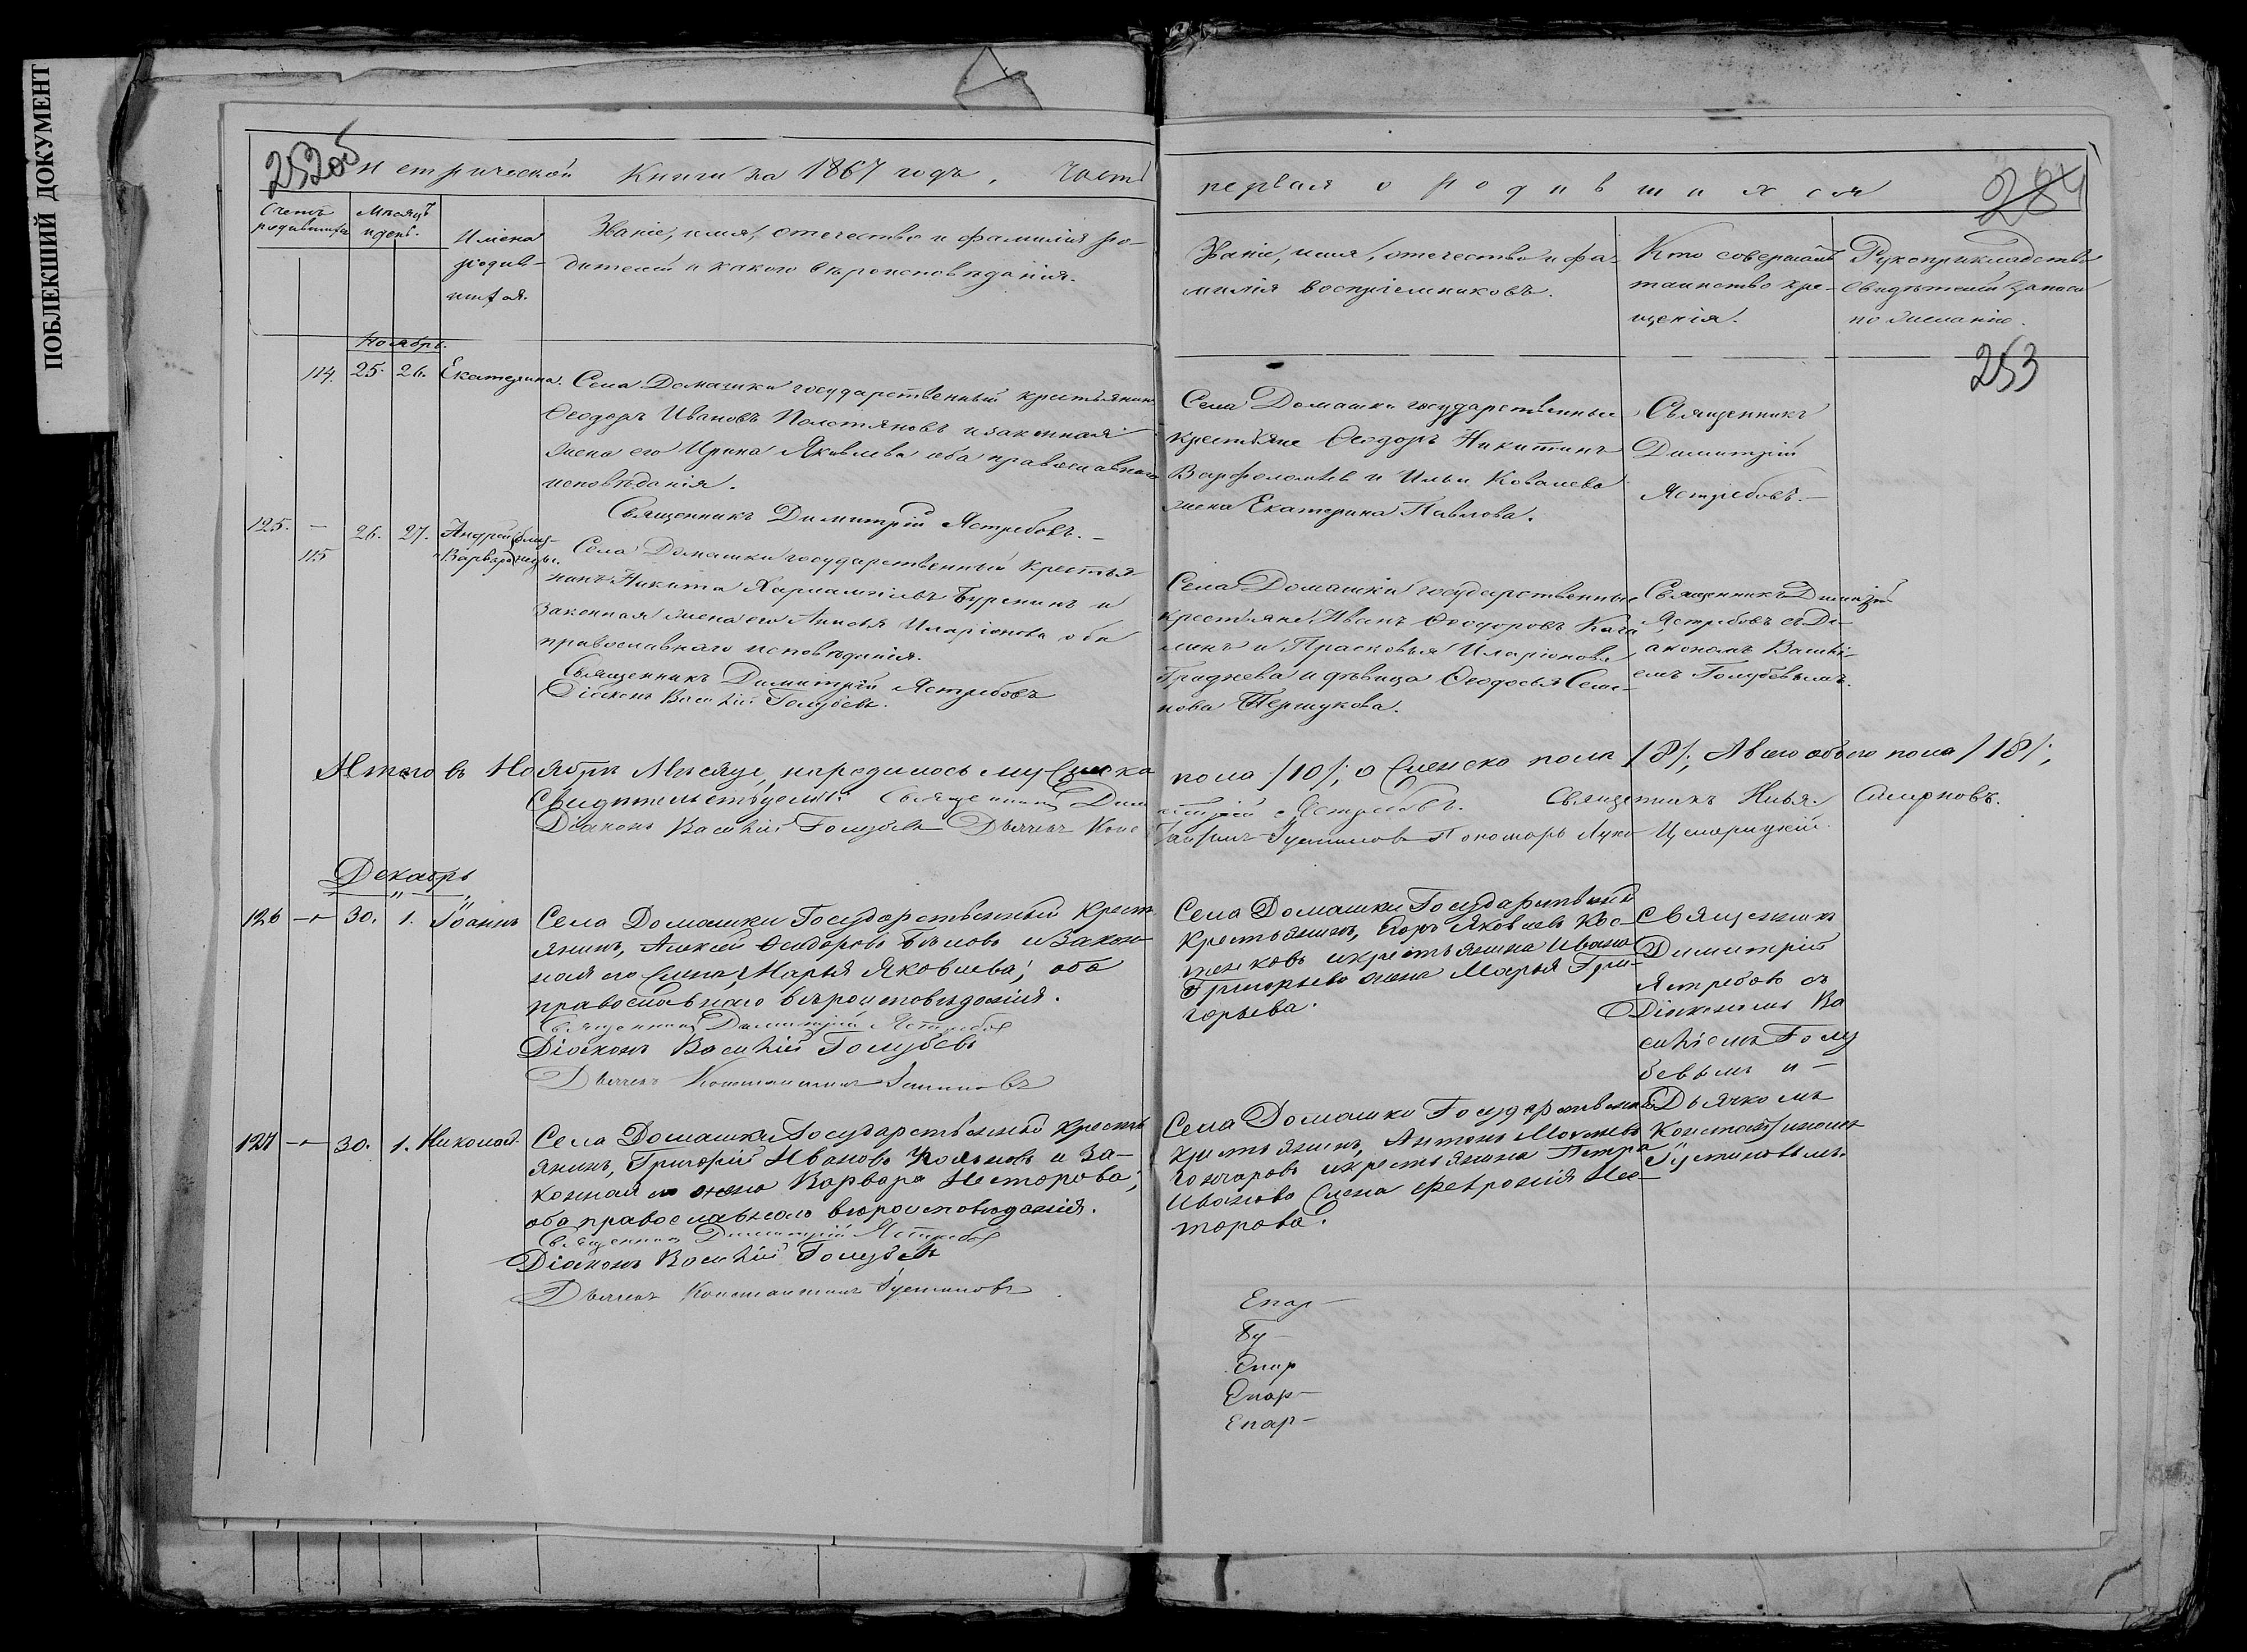 ПОБЛЕКШИЙ ДОКУМЕНТ
252об
Метрической Книги на 1867 годъ, Часть
первая о родившихся
284
253
Счетъ родившихся
Мѣсяцъ и день.
Имена родив-
шихся.
Званіе, имя, отечество и фамилія ро-
дителей и какого вѣроисповѣданія.
Званіе, имя, отечество и фа-
милія воспріемниковъ.
Кто совершалъ
таинство кре-
щенія.
Рукоприкладство
свидѣтелей записи
по желанію.
Ноябрь.
114. 25. 26. Екатерина.
Села Домашки государственный крестьянинъ
Ѳеодоръ Ивановъ Полотяновъ и законная
жена его Ирина Яковлева оба православнаго
исповѣданія.
Священникъ Димитрій Ястребовъ.
Села Домашки государственные
крестьяне Ѳеодоръ Никитинъ
Варфоломѣев и Ильи Ковалева
жена Екатерина Павлова.
Священникъ
Димитрій
Ястребовъ.
125. — 26. 27. Андрей близ-
115 Варвара нецы.
Села Домашки государственный крестья-
нинъ Никита Харлампіевъ Буренинъ и
законная жена его Анисья Иларіонова оба
православнаго исповѣданія.
Священникъ Димитрій Ястребовъ
Діаконъ Василій Голубевъ.
Села Домашки государственные
крестьяне Иванъ Ѳеодоровъ
и Прасковья Иларіонова
Гриднева и дѣвица Ѳеодосья Семе-
нова Першукова.
Священникъ Димитрій
Ястребовъ съ Ді-
акономъ Василі-
емъ Голубевымъ.
Итого въ Ноябрѣ Мѣсяцѣ, народилось мужеска
пола /10/; а Женска пола /8/; А всего обоего пола /18/;
Свидѣтельствуемъ: Священникъ Дим
итрій Ястребовъ. Священникъ Илья Смирновъ.
Діаконъ Василій Голубевъ Дьячекъ Конс
тантинъ Густиновъ Пономарь Лука
Декабрь
126 — 30. 1. Іоаннъ
Села Домашки Государственный Крест
янинъ, Алексѣй Ѳеодоровъ Бѣловъ и Закон-
ная его Жена, Марья Яковлева; оба
православнаго вѣроисповѣданія.
Священникъ Димитрій Ястребовъ
Діаконъ Василій Голубевъ
Дьячекъ Константинъ Густиновъ
Села Домашки Государственный
Крестьянинъ, Егоръ Яковлевъ Кос-
тенковъ и крестьянина Ивана
Григорьева жена Марья Гри-
горьева.
Священникъ
Димитрій
Ястребовъ съ
Діакономъ Ва
силіемъ Голу
бевымъ и —
Дьячкомъ
Константиномъ
Густиновымъ.
127 — 30. 1. Николай.
Села Домашки Государственный Кресть
янинъ, Григорій Ивановъ и За-
конная жена Варвара Несторова;
оба православнаго вѣроисповѣданія.
Священникъ Димитрій Ястребовъ
Діаконъ Василій Голубевъ
Дьячекъ Константинъ Густиновъ
Села Домашки Государственный
крестьянинъ, Антонъ
Гончаровъ и крестьянина Петра
Иванова Жена Февронія Нес-
торова.
Епар-
Бу-
Епар
Епар-
Епар-